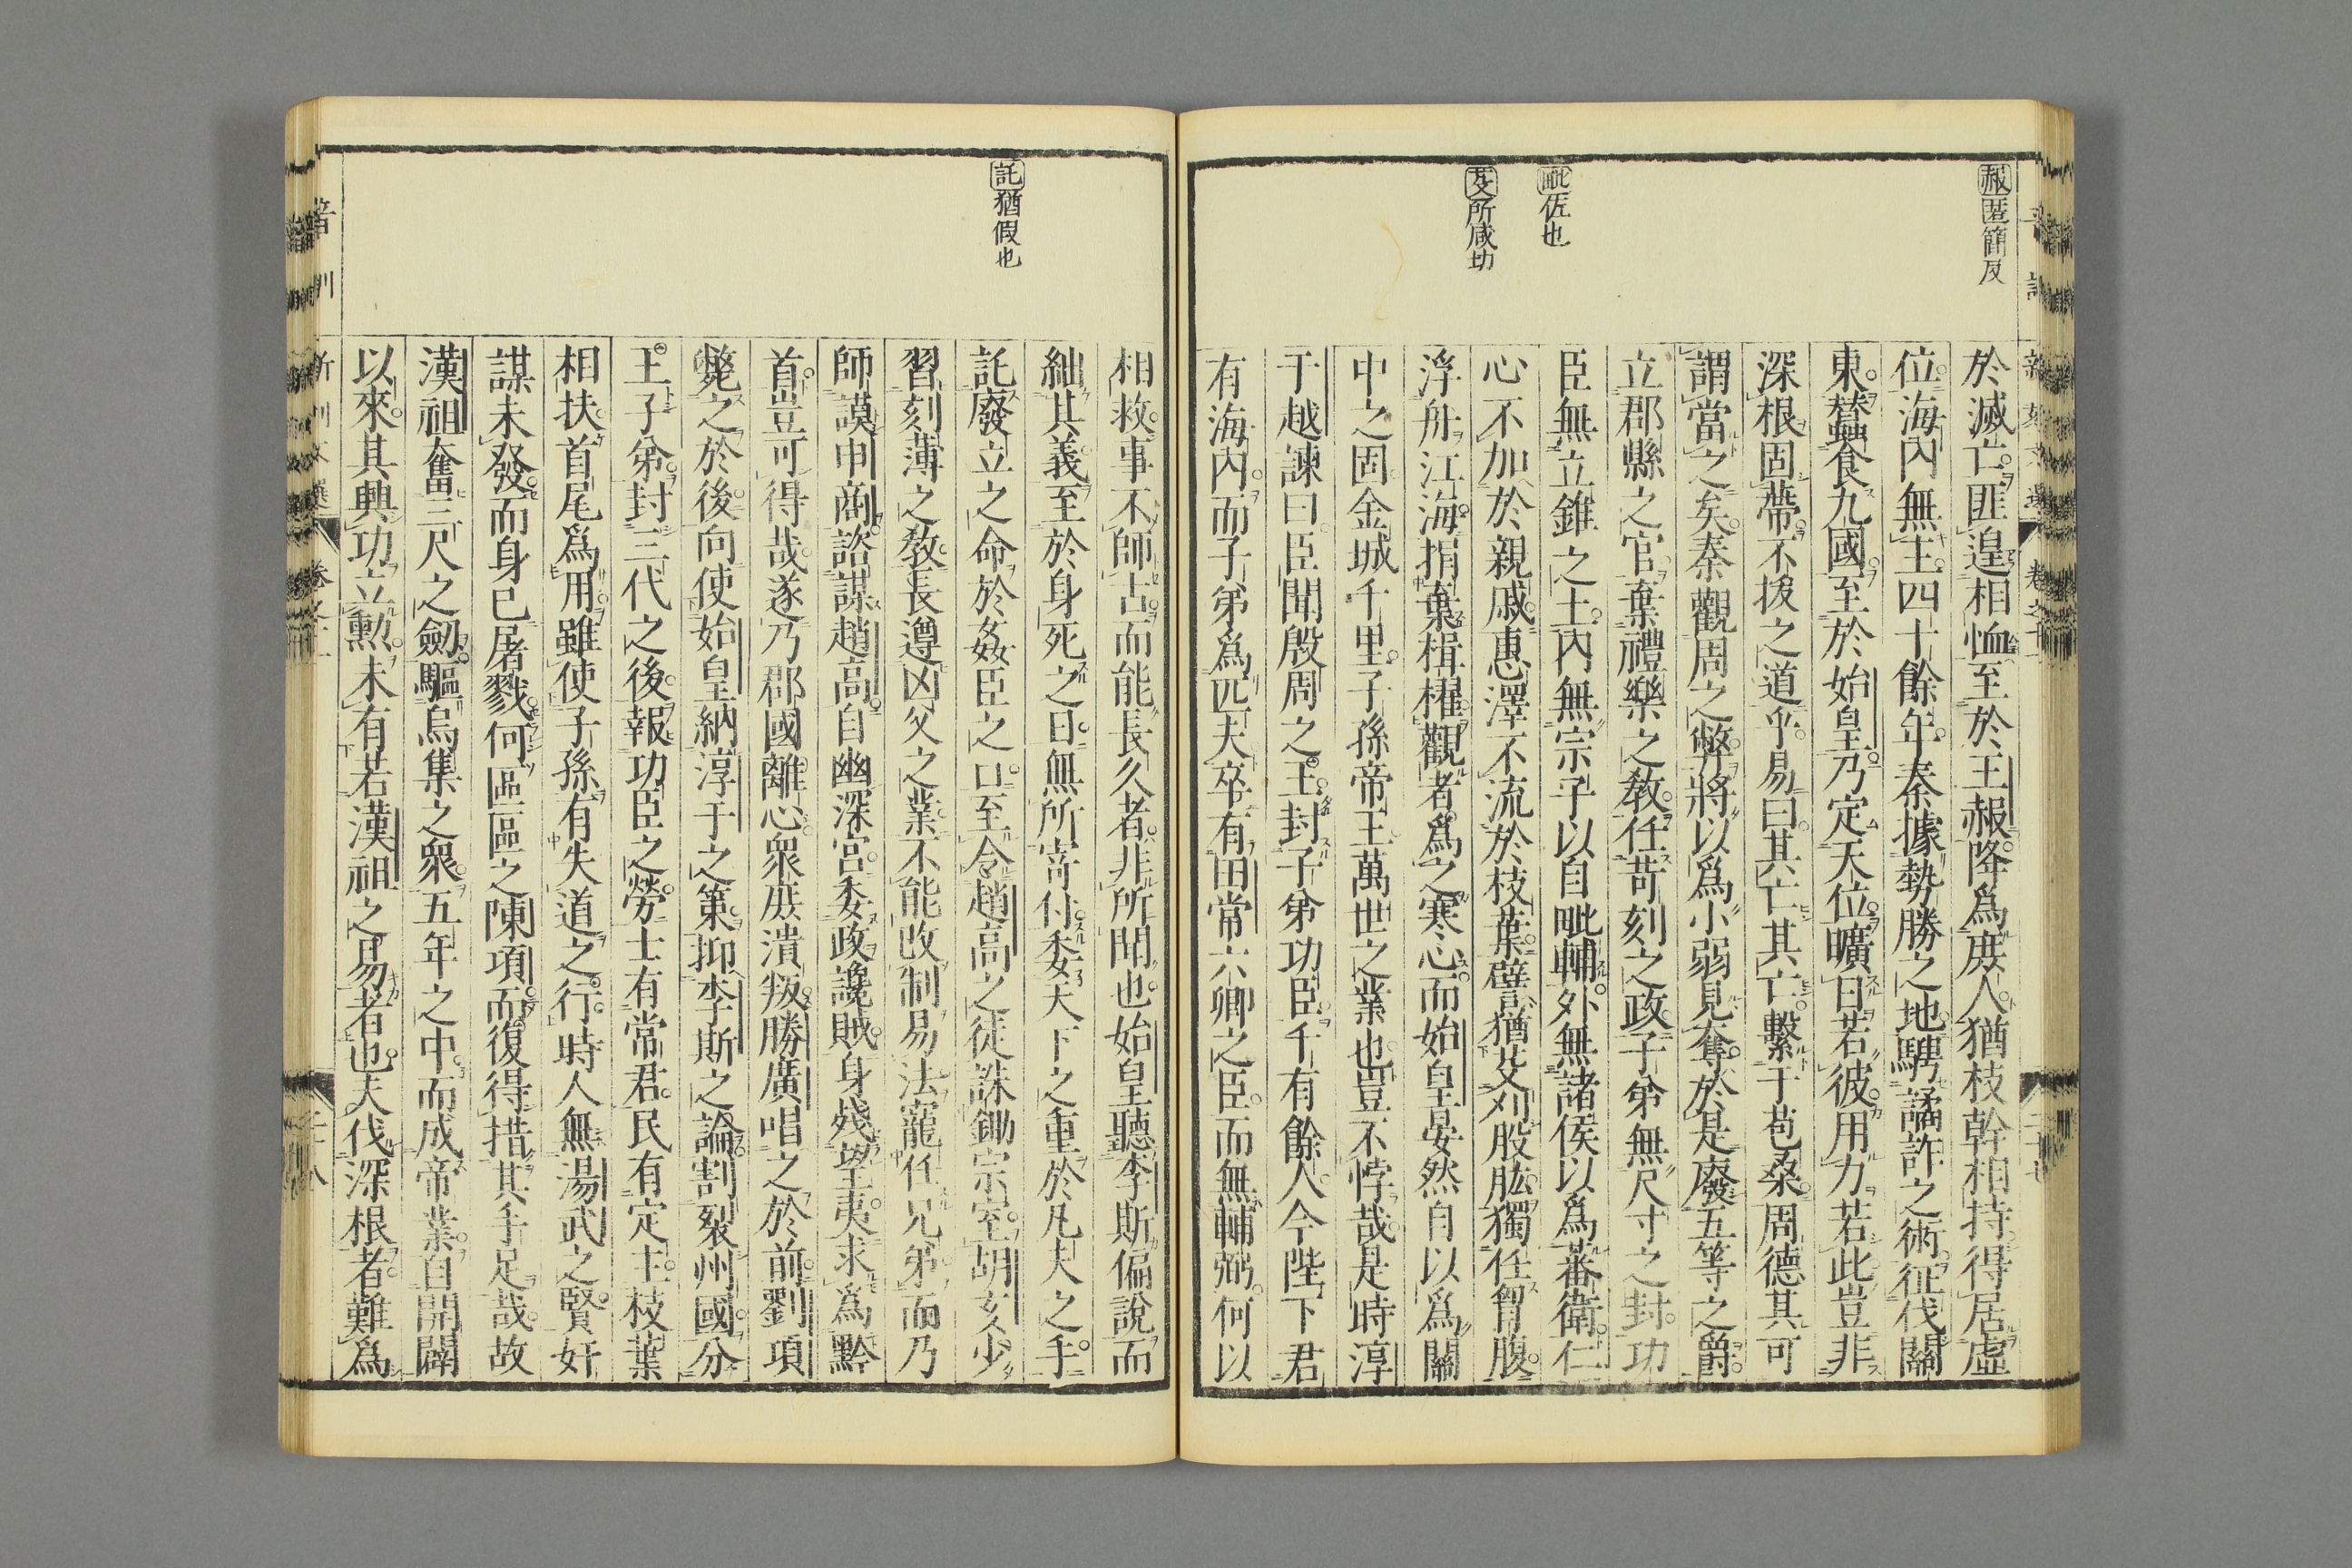 赧匿簡反
毗佐也
芟所咸切
於滅亡匪遑相恤至於王赧降爲庶人猶枝幹相持得居虛
位海內無主四十餘年秦據勢勝之地騁譎詐之術征伐關
東蠶食九國至於始皇乃定天位曠日若彼用力若此豈非
深根固蔕不拔之道乎易曰其亡其亡繫于苞桑周德其可
謂當之矣秦觀周之弊將以爲小弱見奪於是廢五等之爵
立郡縣之官棄禮樂之敎任苛刻之政子弟無尺寸之封功
臣無立錐之土內無宗子以自毗輔外無諸侯以爲蕃衛仁
心不加於親戚惠澤不流於枝葉譬猶芟刈股肱獨任胷腹
浮舟江海捐棄楫櫂觀者爲之寒心而始皇晏然自以爲關
中之固金城千里子孫帝王萬世之業也豈不悖哉是時淳
于越諫曰臣聞殷周之王封子弟功臣千有餘人今陛下君
有海內而子弟爲匹夫卒有田常六卿之臣而無輔弼何以
託猶假也
相救事不師古而能長久者非所聞也始皇聽李斯偏說而
絀其義至於身死之日無所寄付委天下之重於凡夫之手
託廢立之命於姦臣之口至令趙高之徒誅鋤宗室胡亥少
習刻薄之敎長遵凶父之業不能改制易法寵任兄弟而乃
師謨申商諮謀趙高自幽深宮委政讒賊身殘望夷求爲黔
首豈可得哉遂乃郡國離心衆庶潰叛勝廣唱之於前劉項
斃之於後向使始皇納淳于之策抑李斯之論割裂州國分
王子弟封三代之後報功臣之勞士有常君民有定主枝葉
相扶首尾爲用雖使子孫有失道之行時人無湯武之賢奸
謀未發而身已屠戮何區區之陳項而復得措其手足哉故
漢祖奮三尺之劒驅烏集之衆五年之中而成帝業自開闢
以來其興功立勳未有若漢祖之易者也夫伐深根者難爲